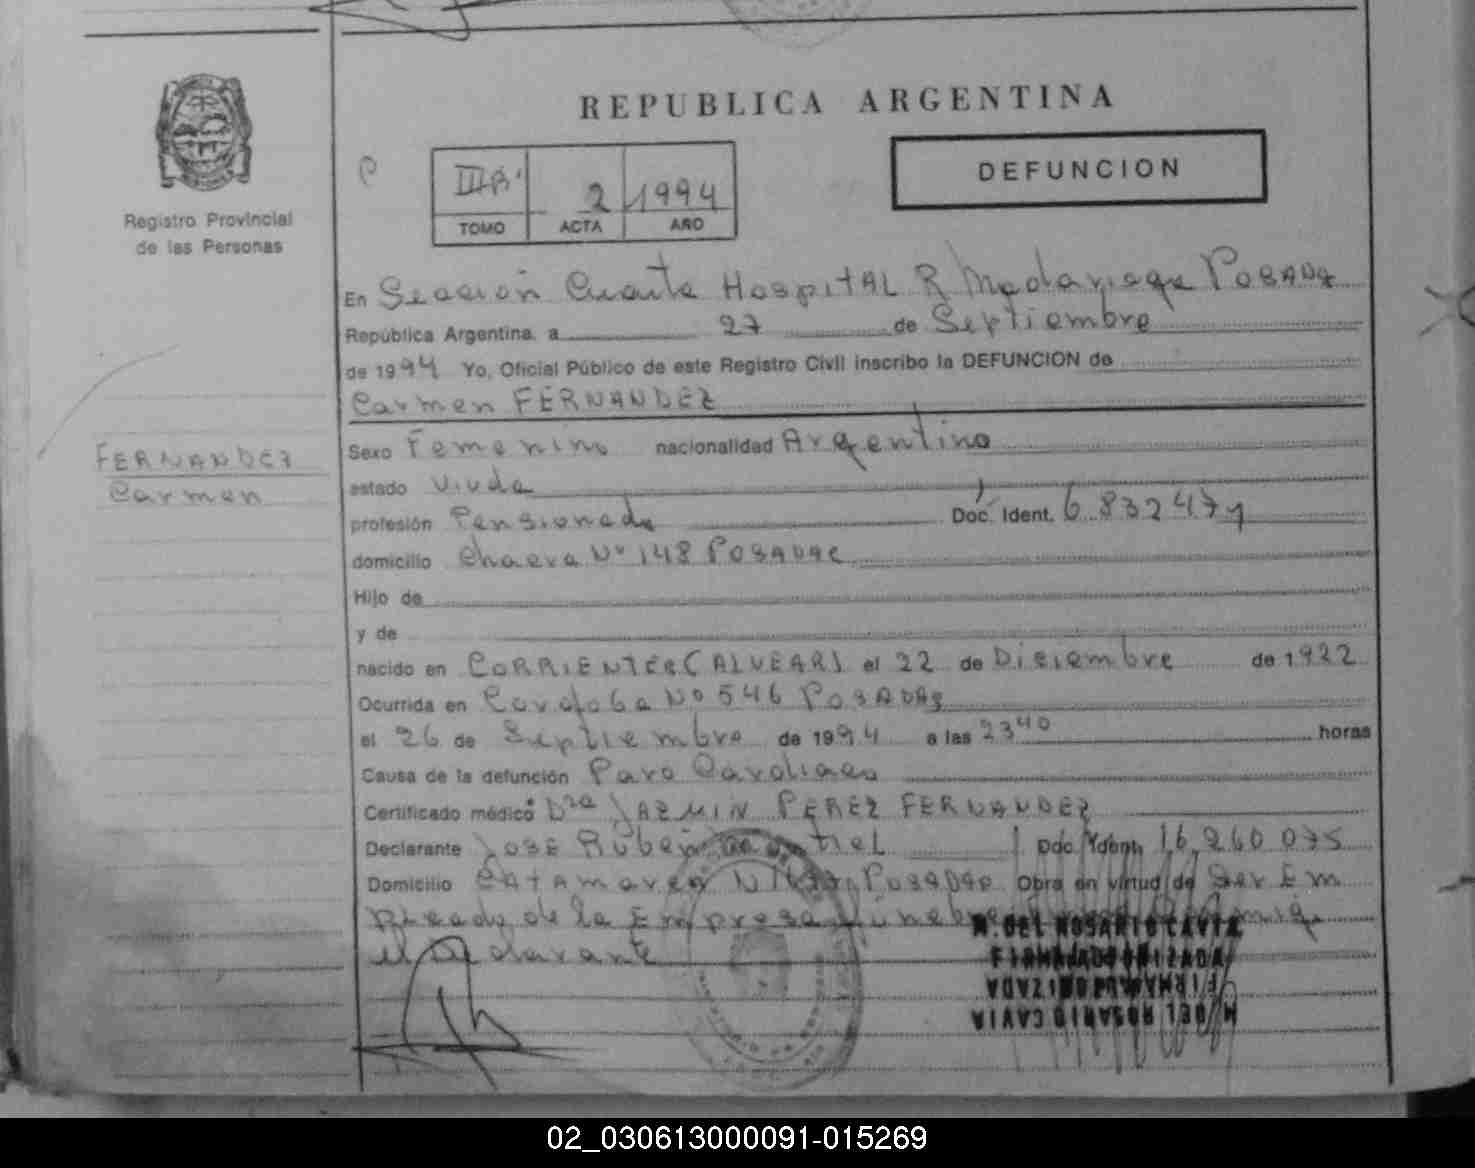 REPUBLICA ARGENTINA
DEFUNCION
Registro Provincial
de las Personas
IIIB' 2 1994
TOMO ACTA AÑO
En Sección Cuarta Hospital R Madariaga POSADAS
República Argentina, a 27 de Septiembre
de 1994 Yo, Oficial Público de este Registro Civil inscribo la DEFUNCION de
Carmen FERNANDEZ
FERNANDEZ
Carmen
Sexo Femenino nacionalidad Argentina
estado Viuda
profesión Pensionada Doc. Ident. 6.832.471
domicilio Chacra Nº 148 POSADAS
Hijo de
y de
nacido en CORRIENTES (ALVEAR) el 22 de Diciembre de 1922
Ocurrida en Cordoba Nº 546 POSADAS
el 26 de Septiembre de 1994 a las 23 40 horas
Causa de la defunción Paro Cardiaco
Certificado médico Dra JAZMIN PEREZ FERNANDEZ
Declarante José Rubén Doc. Ident. 16.260.075
Domicilio CATAMARCA POSADAS Obra en virtud de Ser Em
pleado de la Empresa Fúnebre
el declarante
M. DEL ROSARIO CAVIA
FIRMA AUTORIZADA
FIRMA AUTORIZADA
M. DEL ROSARIO CAVIA
02_030613000091-015269